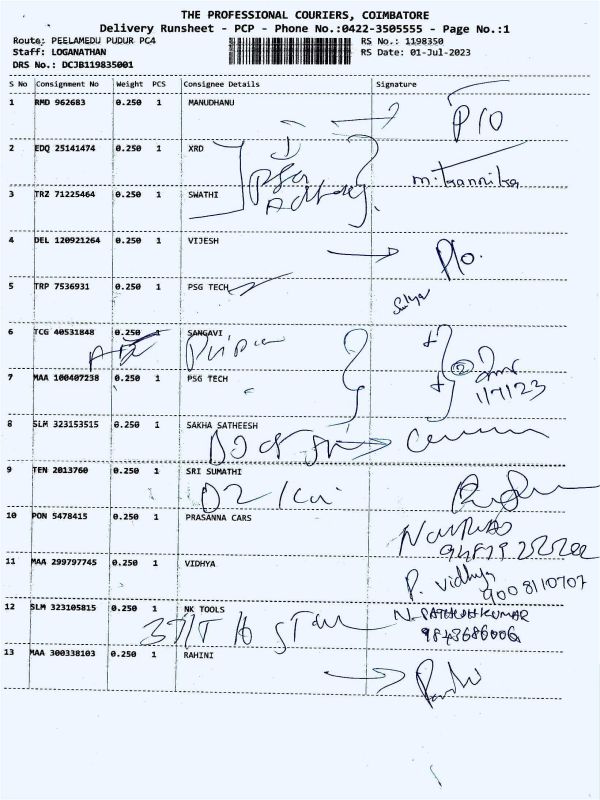 THE PROFESSIONAL COURIERS, COIMBATORE
Delivery Runsheet - PCP - Phone No.:0422-3505555 - Page No.:1
Route: PEELAMEDU PUDUR PC4 RS No.: 1198350
Staff: LOGANATHAN RS Date: 01-Jul-2023
DRS No.: DCJB119835001
S No Consignment No Weight PCS Consignee Details Signature
1 RMD 962683 0.250 1 MANUDHANU
P/O
2 EDQ 25141474 0.250 1 XRD
3 TRZ 71225464 0.250 1 SWATHI
4 DEL 120921264 0.250 1 VIJESH
P/o.
5 TRP 7536931 0.250 1 PSG TECH
6 TCG 40531848 0.250 1 SANGAVI
7 MAA 100407238 0.250 1 PSG TECH
2
1/7/23
8 SLM 323153515 0.250 1 SAKHA SATHEESH
9 TEN 2013760 0.250 1 SRI SUMATHI
10 PON 5478415 0.250 1 PRASANNA CARS
11 MAA 299797745 0.250 1 VIDHYA
P. vidhya
9008110707
12 SLM 323105815 0.250 1 NK TOOLS
9843686006
13 MAA 300338103 0.250 1 RAHINI